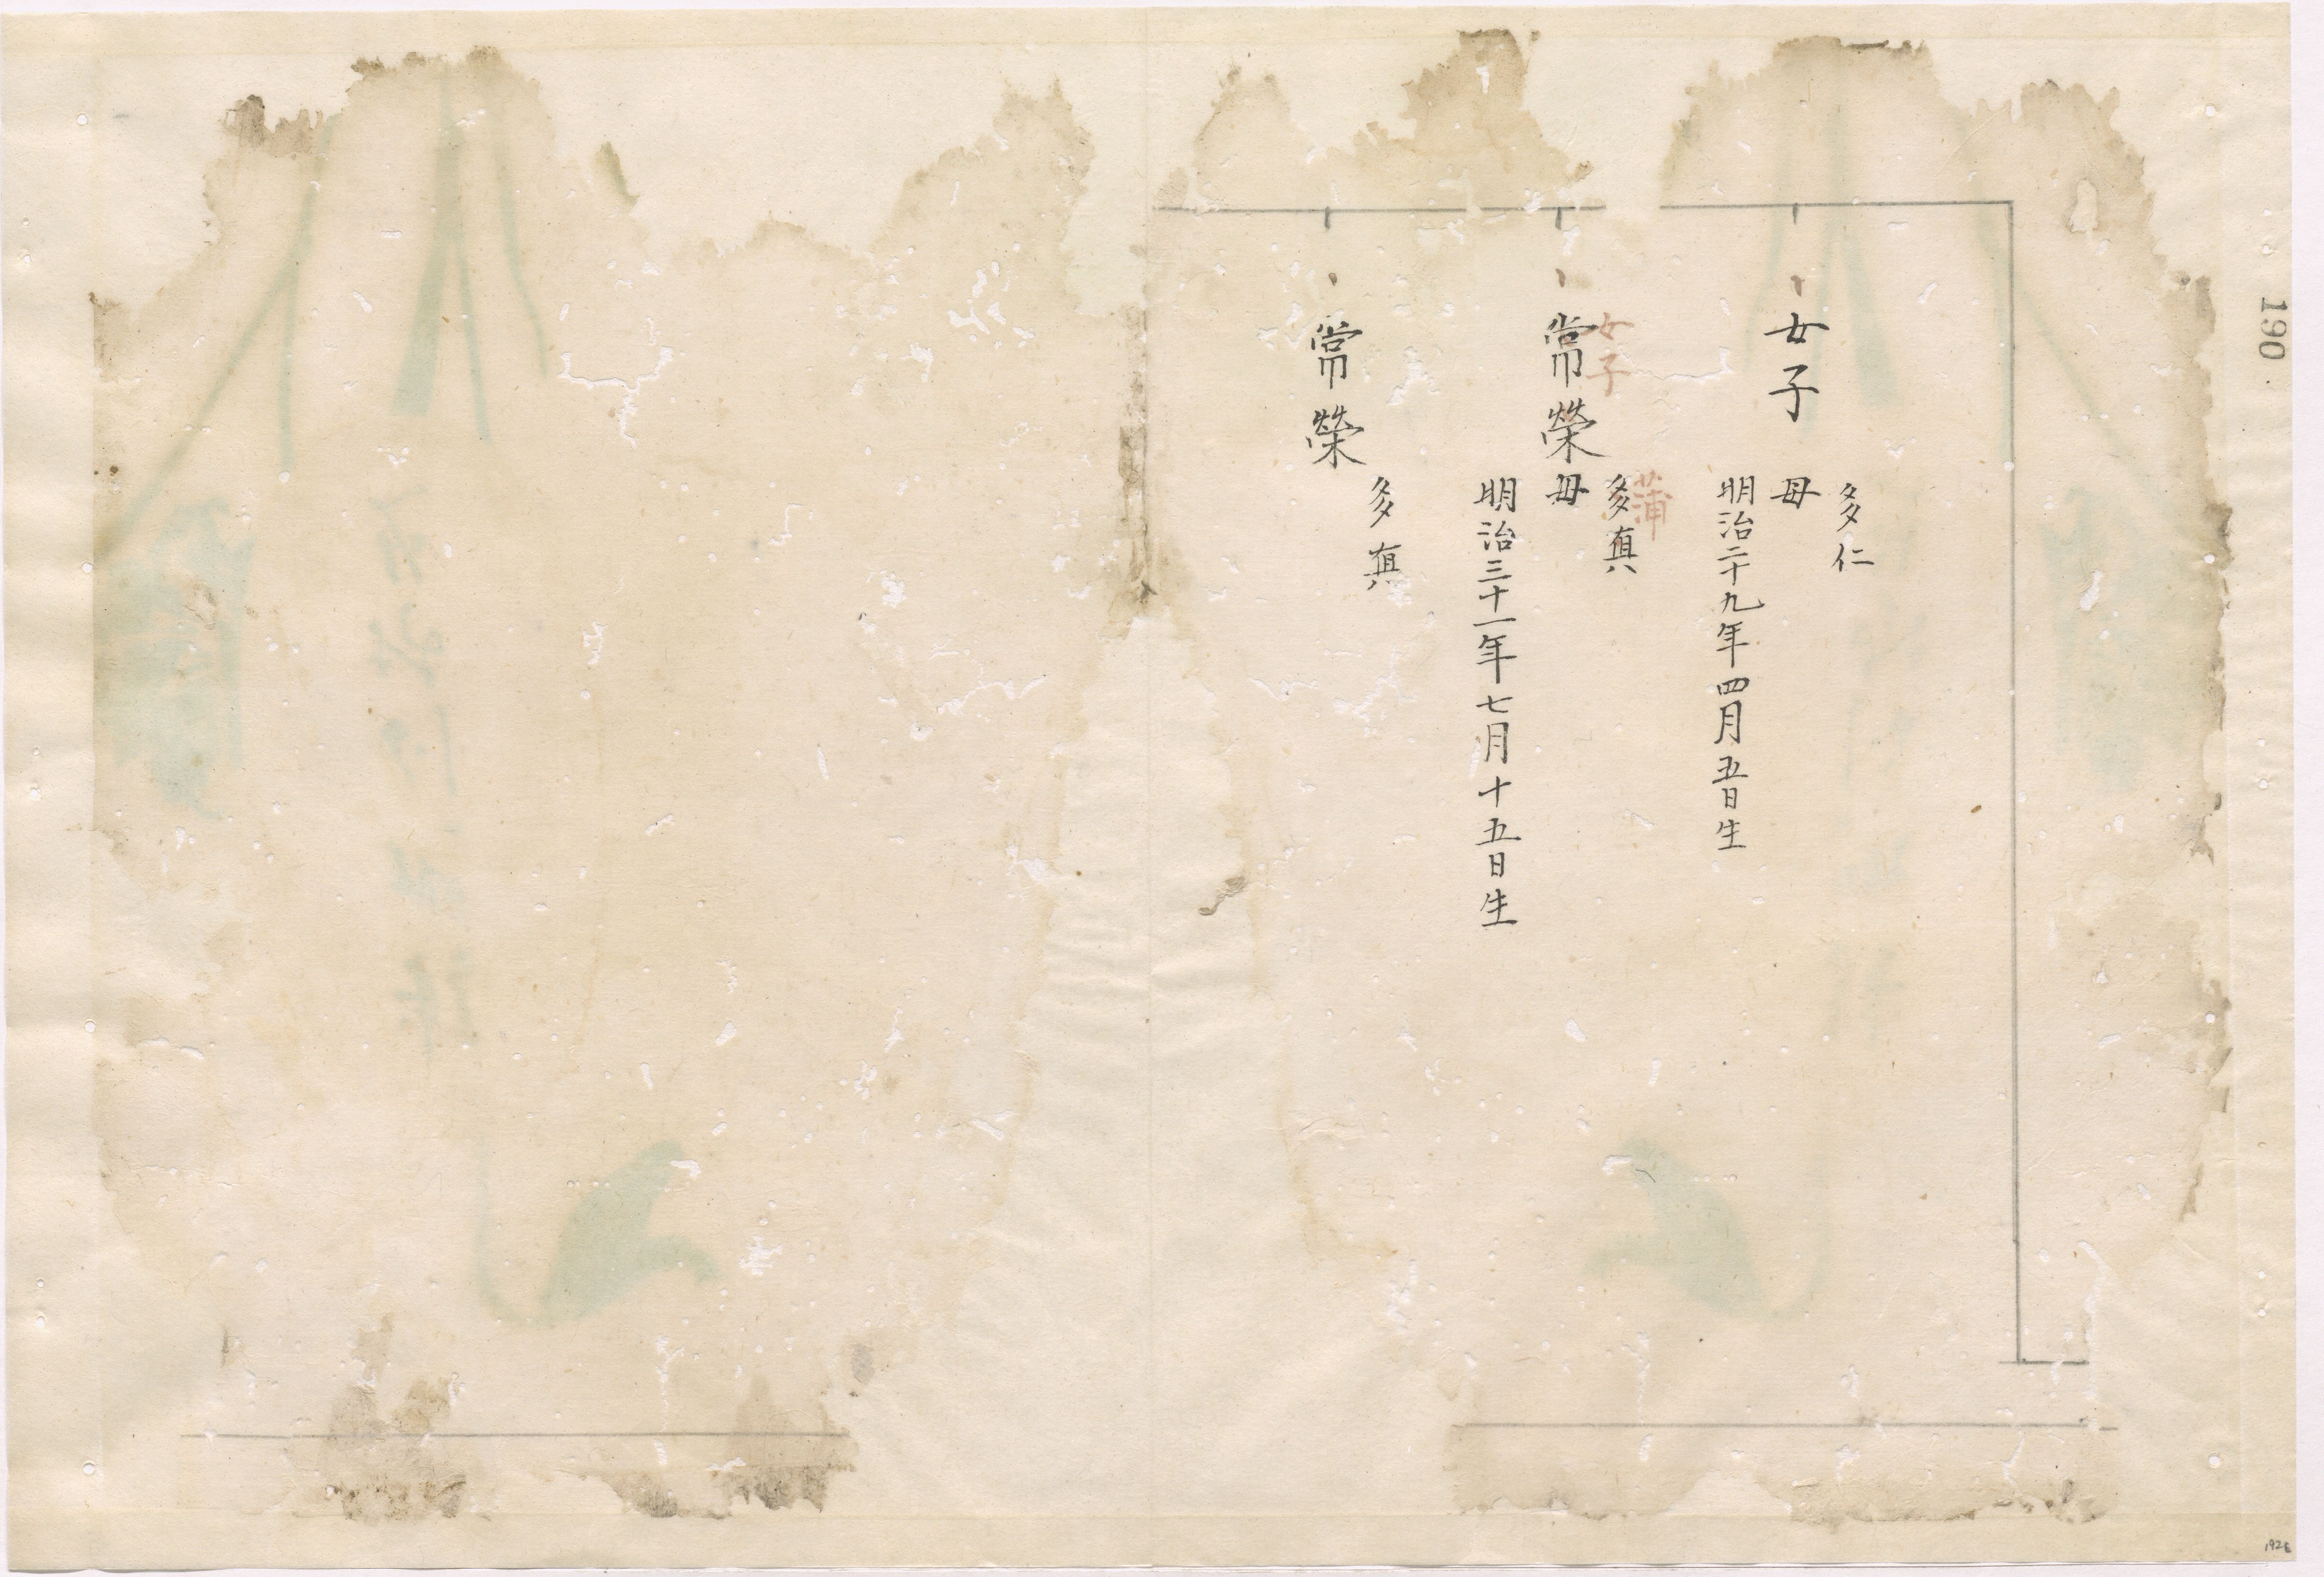 多仁
女子
母
明治二十九年四月五日生
蒲
女子
多真
常榮
母
明治三十一年七月十五日生
多真
常榮
190